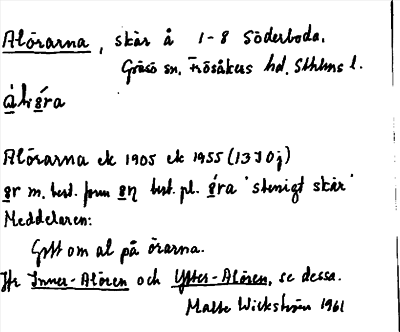 Alörarna, skär å 1-8 Söderboda.
Gräsö sn. Frösåkers hd. Sthlms l.
Alörarna ek 1905 ek 1955 (13J0j)
m. best. form best. pl. 'stenigt skär'
Meddelaren:
Gott om al på örarna.
Jfr Inner-Alören och Ytter-Alören, se dessa.
Malte Wickström 1961